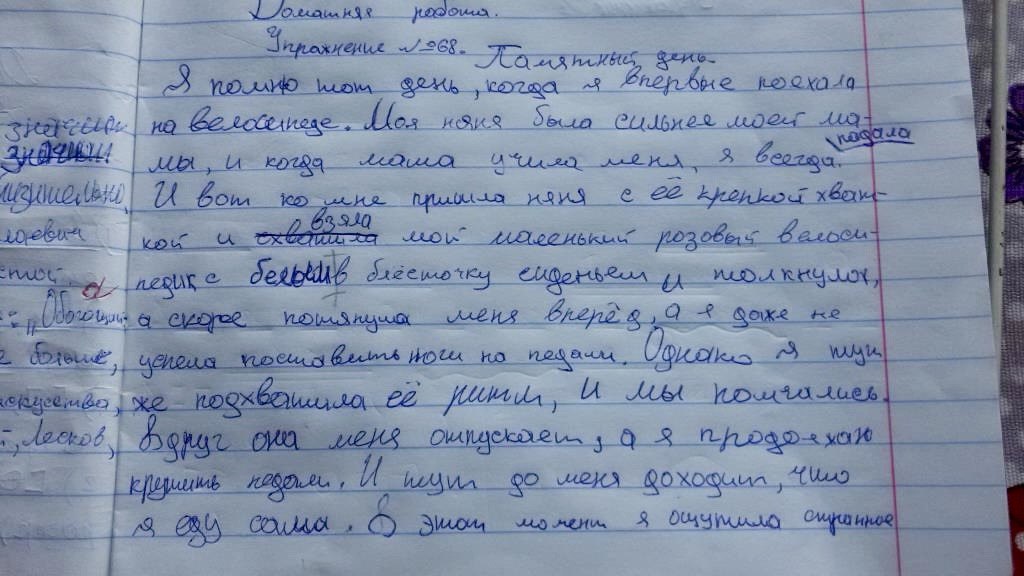 Домашняя работа.
Упражнение №268.
Памятный день.
Я помню тот день, когда я впервые поехала
на велосипеде. Моя няня была сильнее моей ма-
мы, и когда мама учила меня, я всегда падала
И вот ко мне пришла няня с её крепкой хват-
кой и взяла мой маленький розовый велоси-
педик с белым в блёсточку сиденьем и толкнула,
а скорее потянула меня вперёд, а я даже не
успела поставить ноги на педали. Однако я тут
же подхватила её ритм, и мы помчались.
Вдруг она меня отпускает, а я продолжаю
крутить педали. И тут до меня доходит, что
я еду сама. В этот момент я ощутила странное
лаевич
стой.
"Обогащай
больше,
искусства,
Лесков,